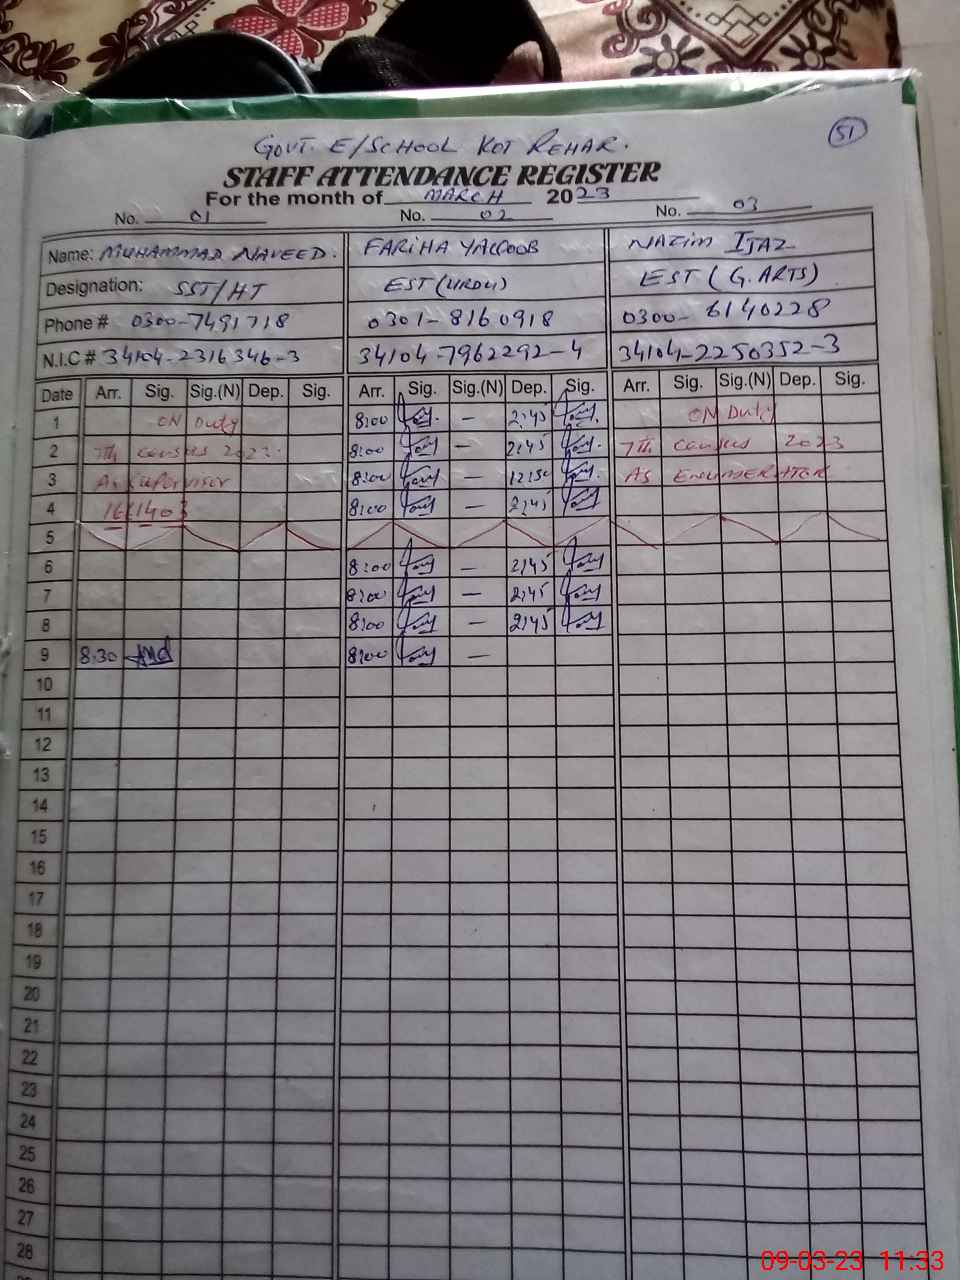 51
GOVT. E/SCHOOL KOT REHAR.
STAFF ATTENDANCE REGISTER
For the month of MARCH 2023
No. 01 No. 02 No. 03
Name: MUHAMMAD NAVEED. FARIHA YAQOOB NAZIM IJAZ
Designation: SST/HT EST (URDU) EST (G. ARTS)
Phone # 0300-7491718 0301-8160918 0300-6140228
N.I.C # 34104-2316346-3 34104-7962292-4 34104-2250352-3
Date Arr. Sig. Sig.(N) Dep. Sig. Arr. Sig. Sig.(N) Dep. Sig. Arr. Sig. Sig.(N) Dep. Sig.
1 ON Duty 8:00 — 2:45 ON Duty
2 7Th census 2023. 8:00 — 2:45 7Th census 2023
3 As Supervisor 8:00 — 12:30 As ENUMERATOR
4 161403 8:00 — 2:45
5
6 8:00 — 2:45
7 8:00 — 2:45
8 8:00 — 2:45
9 8:30 8:00 —
10
11
12
13
14
15
16
17
18
19
20
21
22
23
24
25
26
27
28
09-03-23 11:33